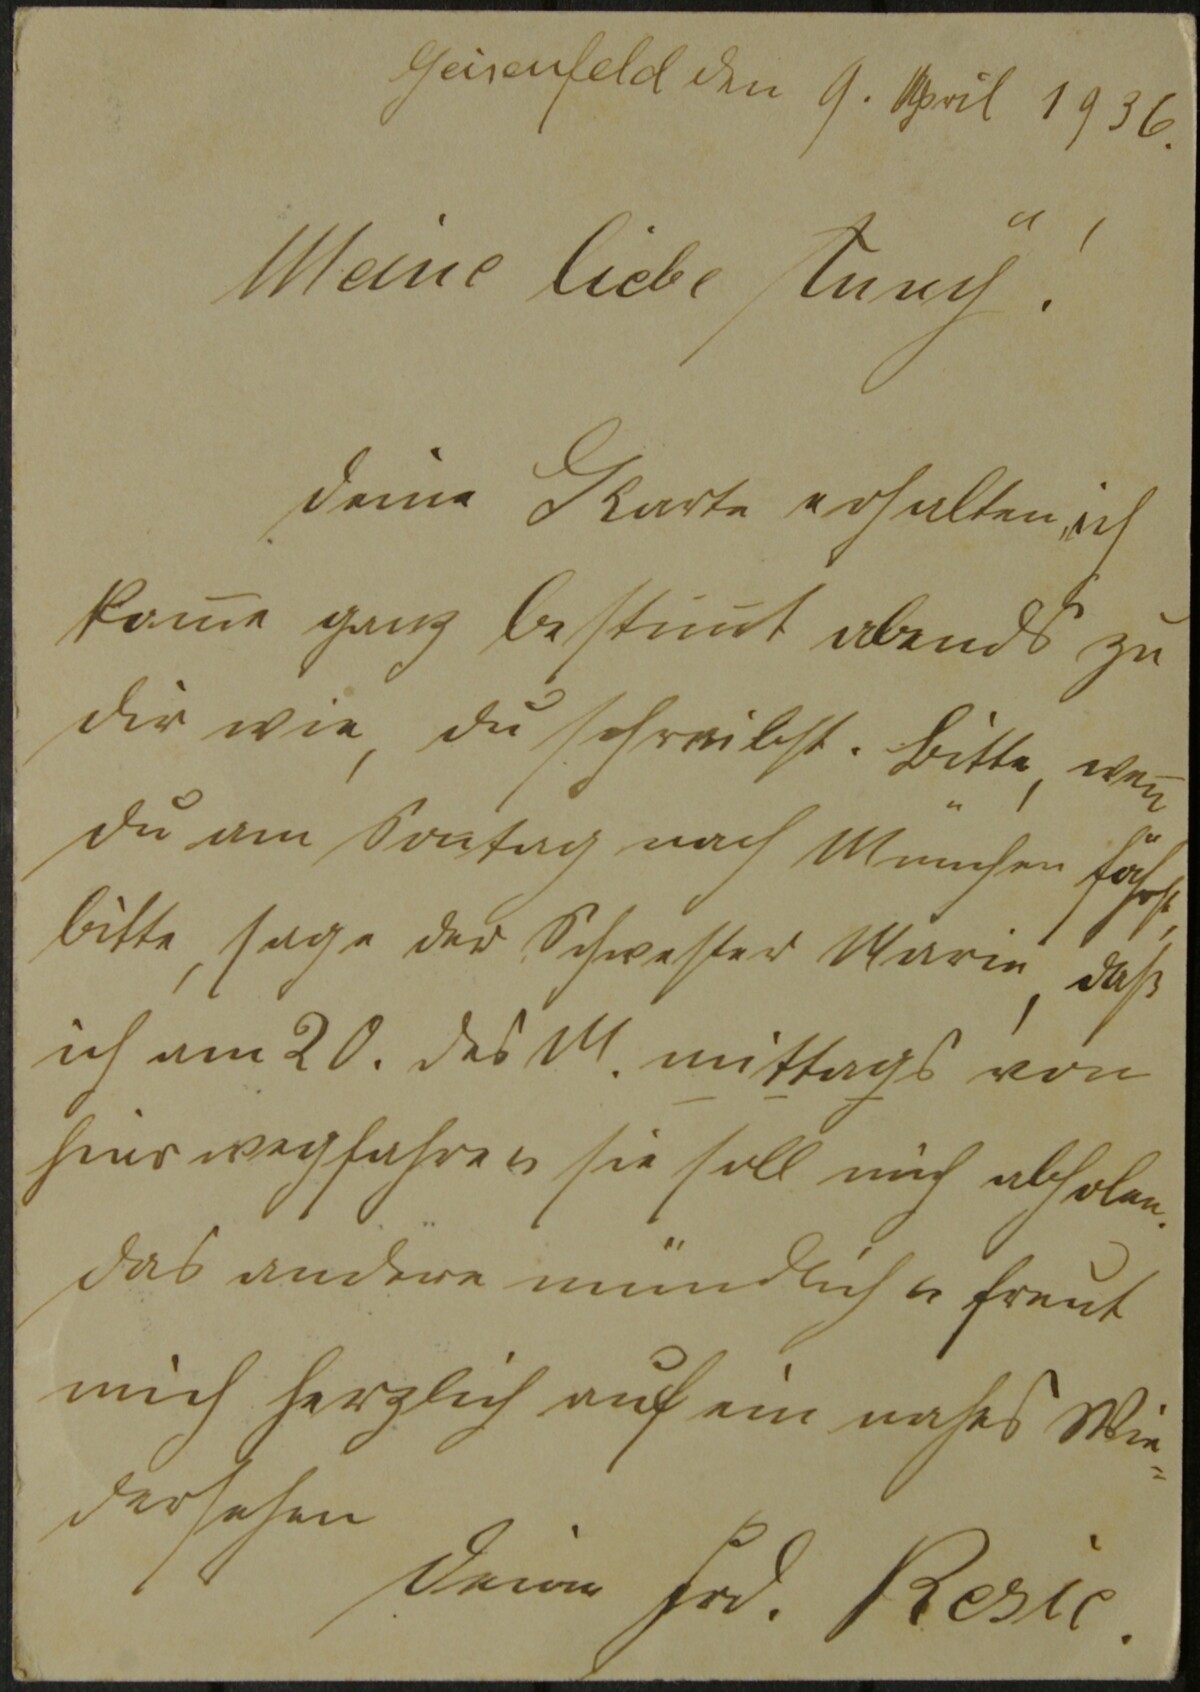 Geisenfeld den 9. April 1936.
Meine liebe Fanny!
deine Karte erhalten, ich
kom̅e ganz bestim̅t abends zu
dir wie, du schreibst. Bitte, wen̅
du am Son̅tag nach München fährst,
bitte, sage der Schwester Marie, daß
ich am 20. des M. mittags von
hier wegfahre u sie soll mich abholen.
das andere mündlich u freut
mich herzlich auf ein nahes Wie=
dersehen
Deine Frd. Resie.